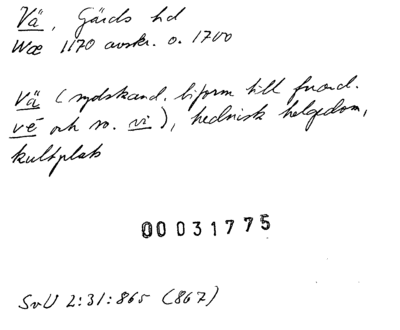 Vä, Gärds hd
Wæ 1170 avskr. o. 1700
Vä (sydskand. biform till fnord.
vé och sv. vi), hednisk helgedom,
kultplats
00031775
SvU 2:31:865 (867)